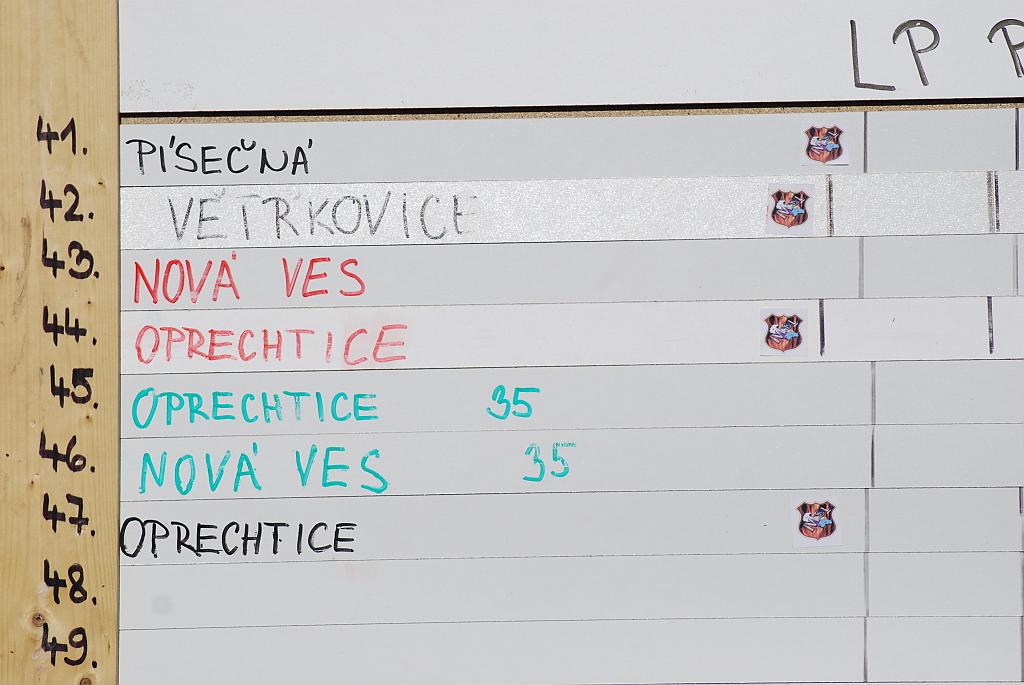 LP P
41. PÍSEČNÁ
42. VĚTŘKOVICE
43. NOVÁ VES
44. OPRECHTICE
45. OPRECHTICE 35
46. NOVÁ VES 35
47. OPRECHTICE
48.
49.